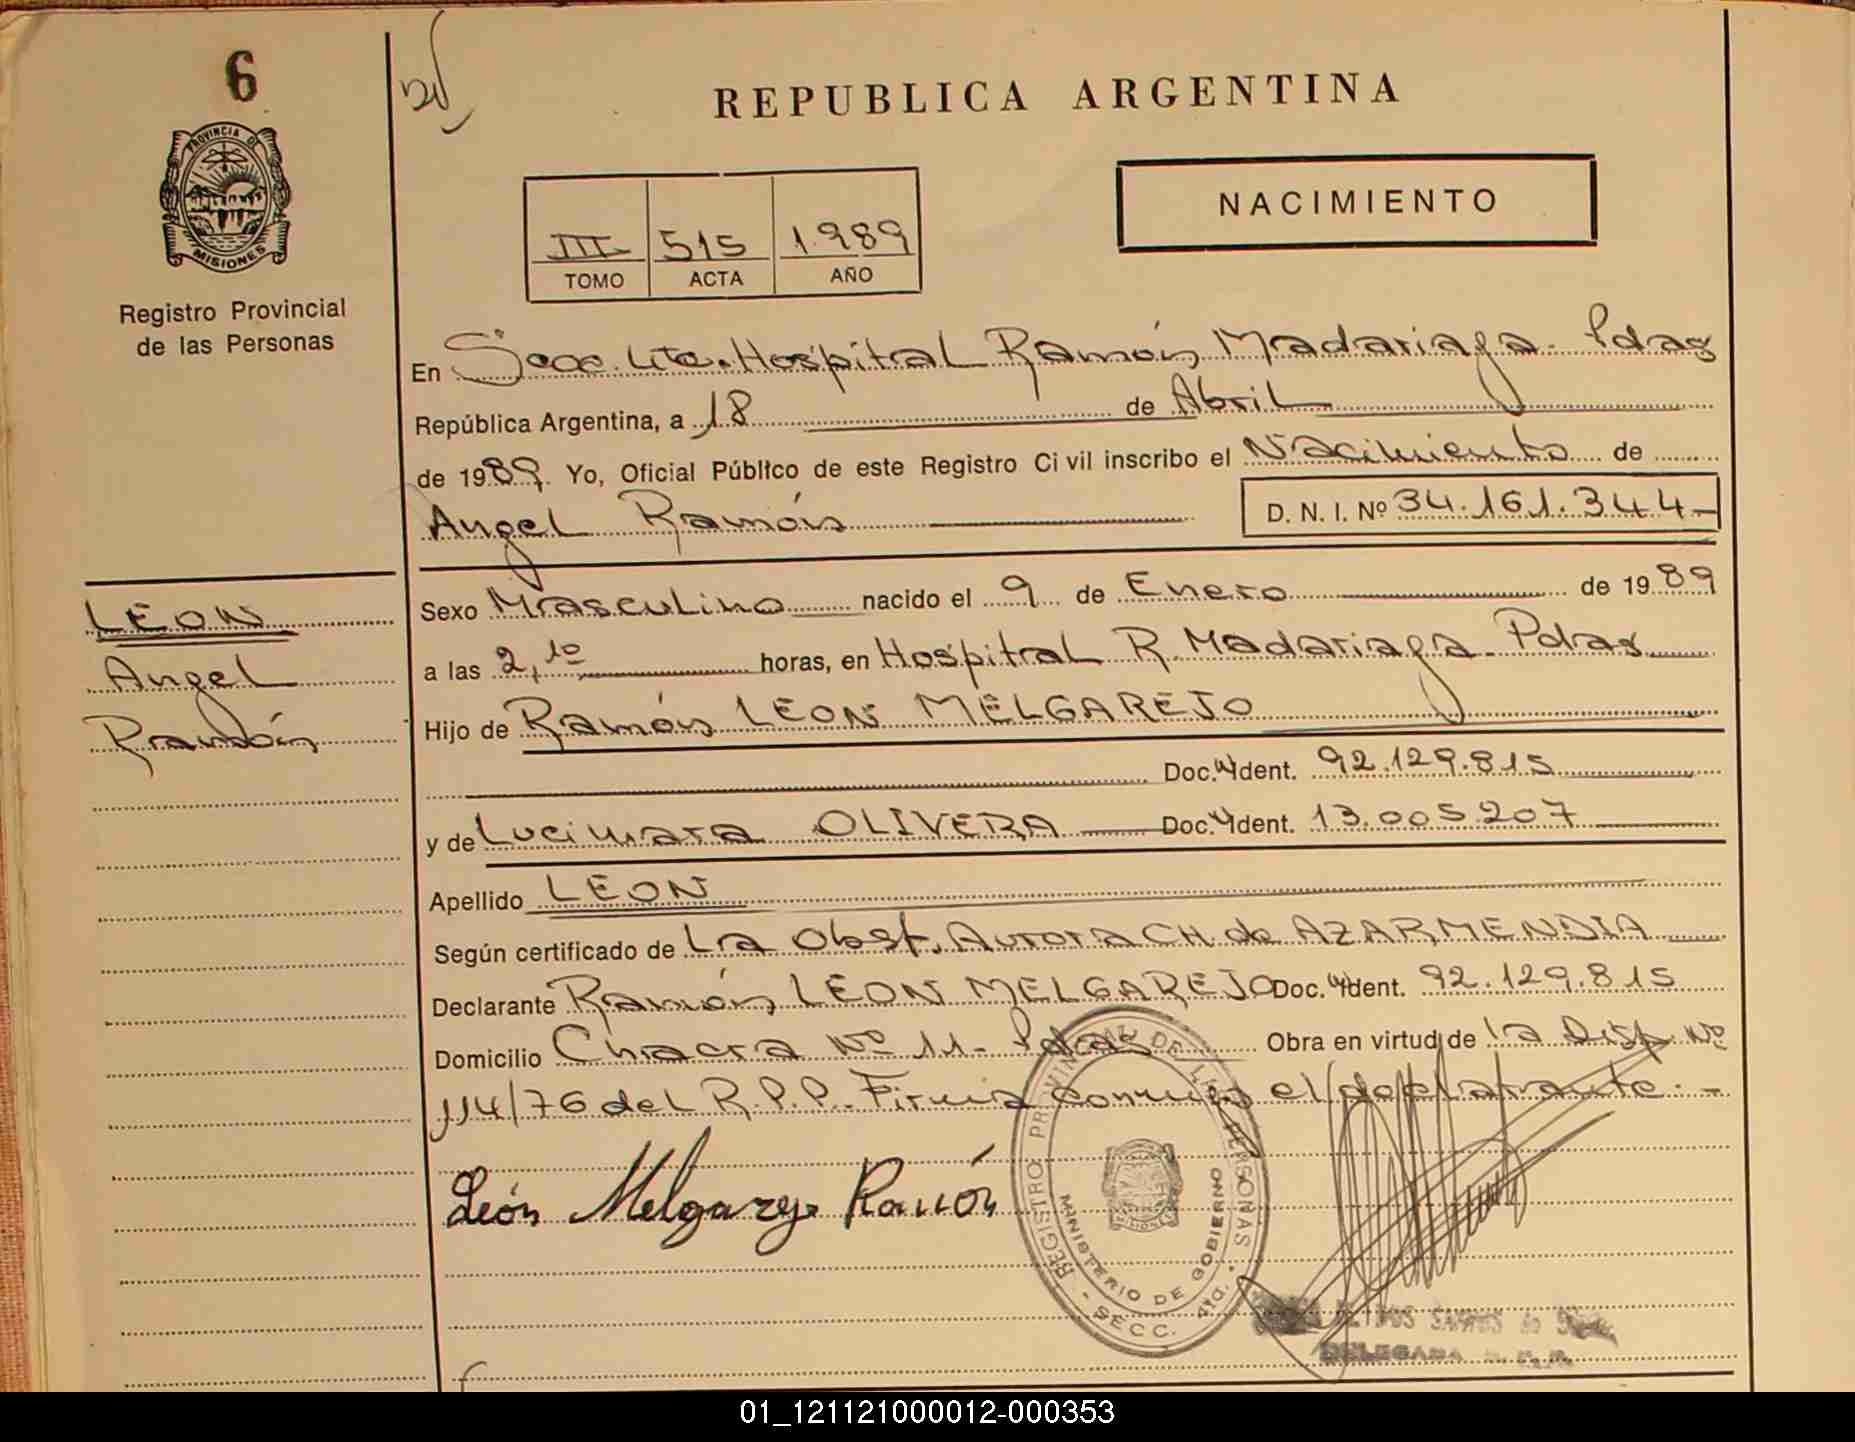 6
PROVINCIA DE
MISIONES
Registro Provincial
de las Personas
LEON
Angel
Ramón
REPUBLICA ARGENTINA
III 515 1.989
TOMO ACTA AÑO
NACIMIENTO
En Secc. 4ta. Hospital Ramón Madariaga - Pdas
República Argentina, a 18 de Abril
de 1989. Yo, Oficial Público de este Registro Civil inscribo el Nacimiento de
Angel Ramón D. N. I. Nº 34.161.344-
Sexo Masculino nacido el 9 de Enero de 1989
a las 2,10 horas, en Hospital R. Madariaga - Pdas
Hijo de Ramón LEON MELGAREJO
Doc. Ident. 92.129.815
y de Lucimara OLIVERA Doc. Ident. 13.005.207
Apellido LEON
Según certificado de La Obst. Aurora CH. de AZARMENDIA
Declarante Ramón LEON MELGAREJO Doc. Ident. 92.129.815
Domicilio Chacra Nº 11 - Pdas Obra en virtud de la Disp. Nº
114/76 del R.P.P. - Firma conmigo el declarante. -
León Melgarejo Ramón
REGISTRO PROVINCIAL DE LAS PERSONAS
MINISTERIO DE GOBIERNO
- SECC. 4ta. -
DELEGADA
01_121121000012-000353